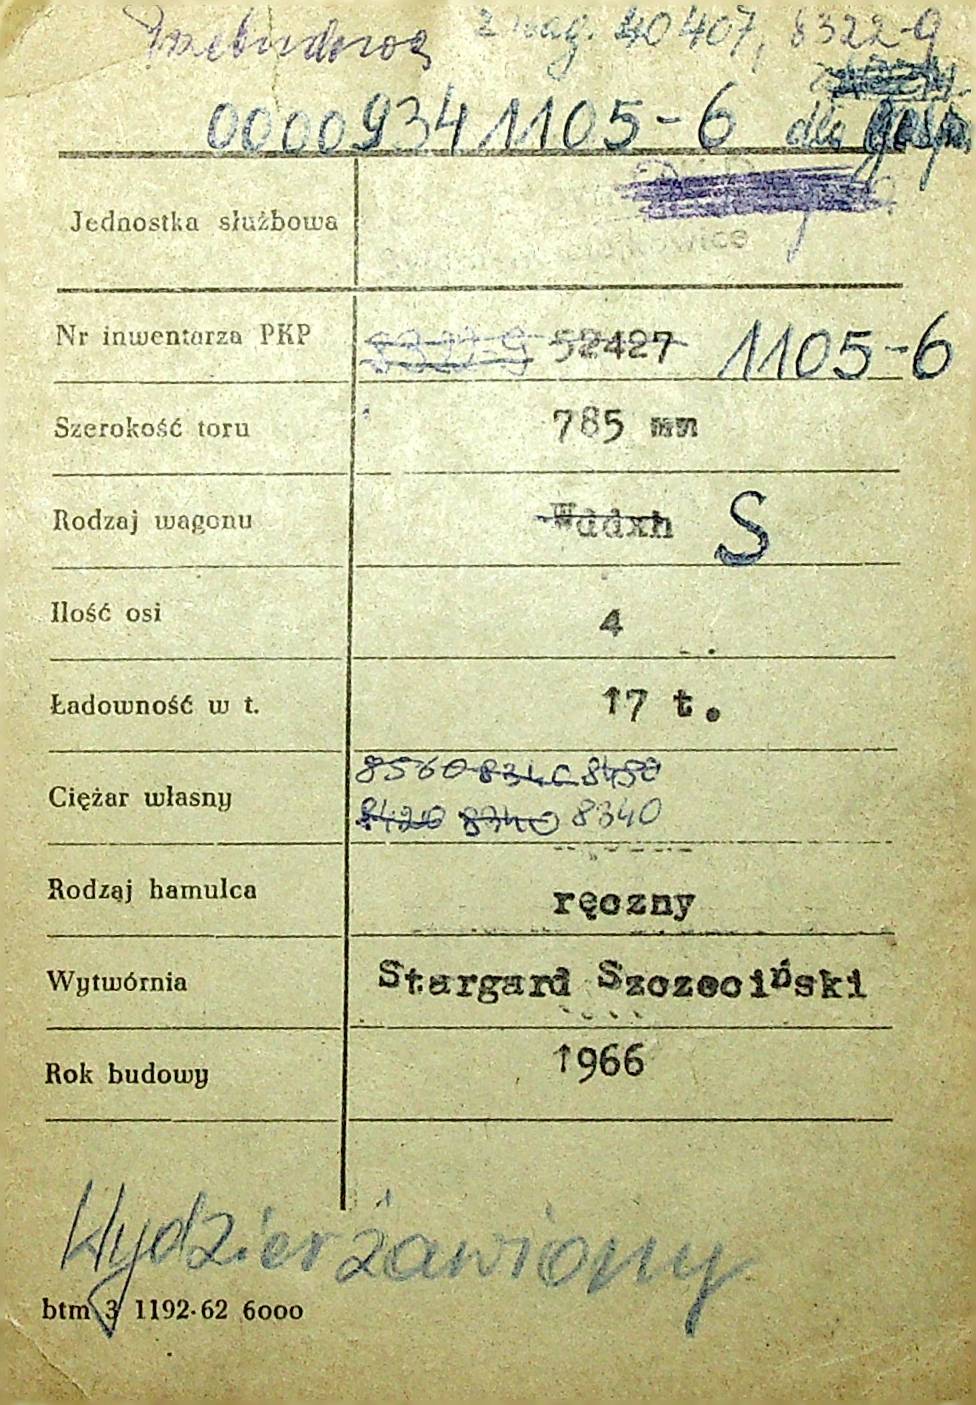 Przebudowa z wag. 40407, 8322-9
00009341105-6 dla gosp.
Jednostka służbowa
Nr inwentarza PKP 8322-9 52427 1105-6
Szerokość toru 785 mm
Rodzaj wagonu Wddxh S
Ilość osi 4
Ładowność w t. 17 t.
Ciężar własny 8560 8340 8450
8420 8340 8340
Rodzaj hamulca ręczny
Wytwórnia Stargard Szczeciński
Rok budowy 1966
Wydzierżawiony
btm 3 1192·62 6000